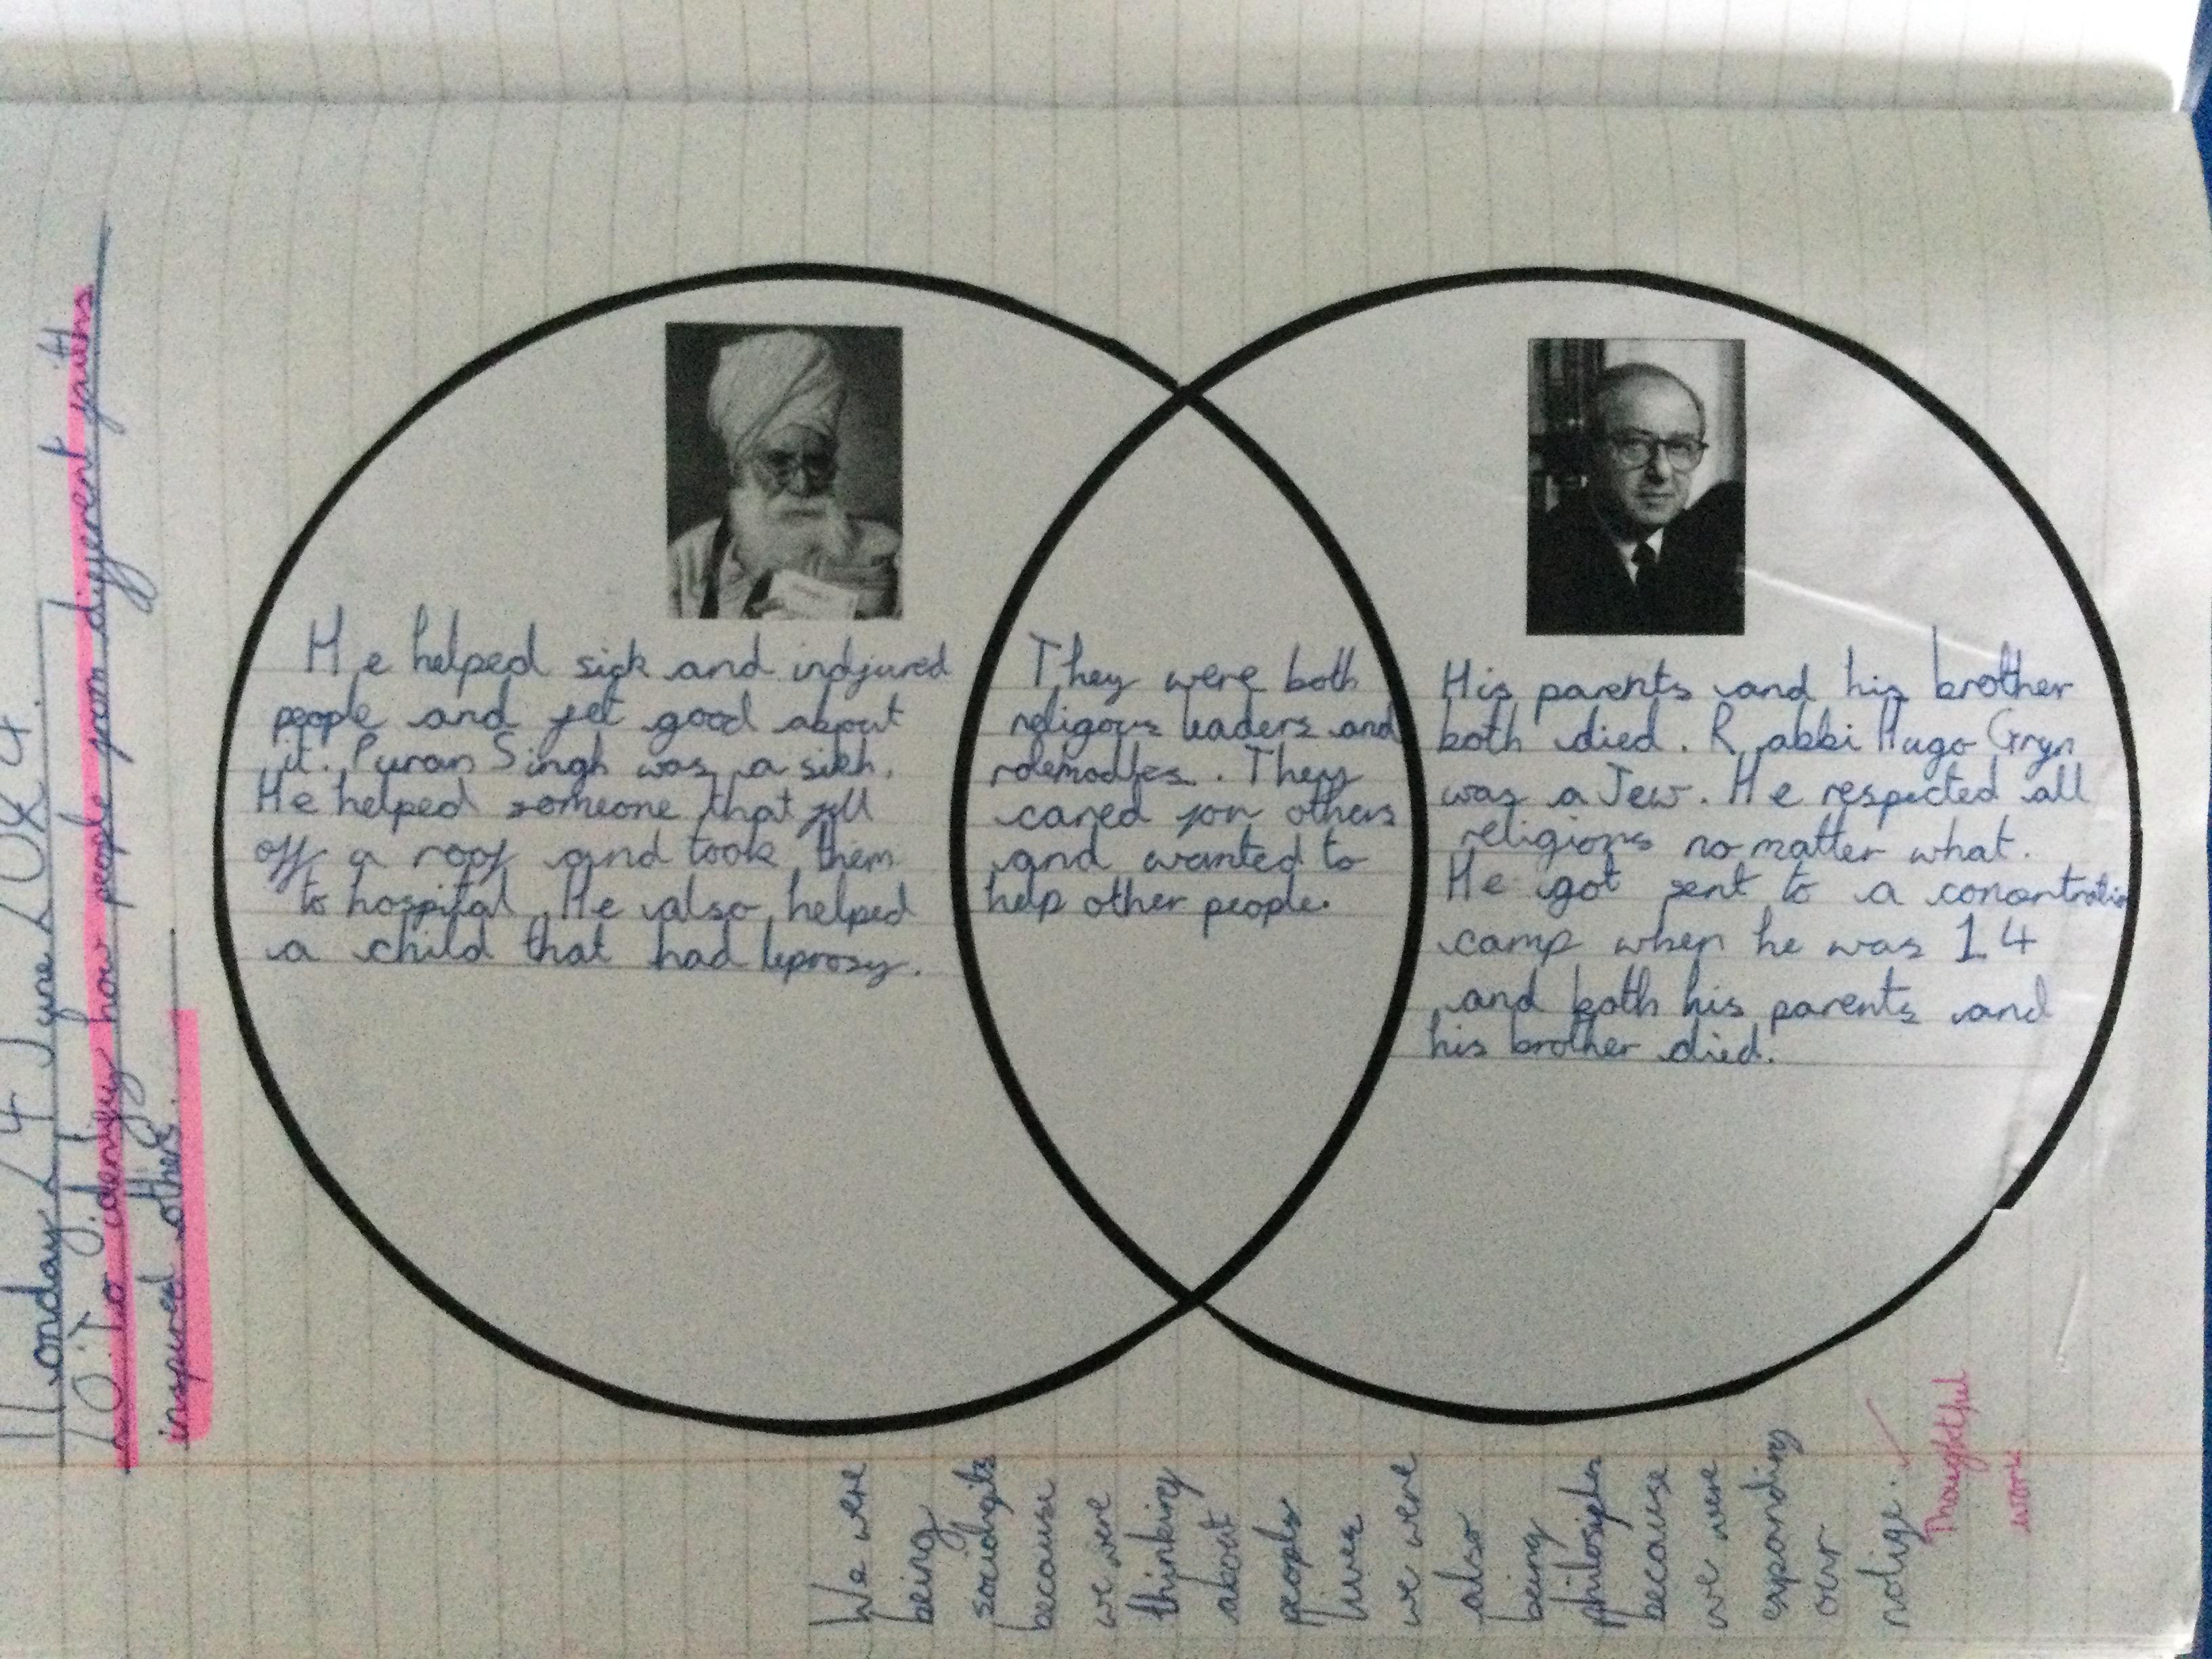 Monday 24 June 2024.
LO: To idenify how people from different faiths
inspired others.
He helped sick and indjured
people and felt good about
it. Puran Singh was a sikh.
He helped someone that fell
off a roof and took them
to hospital. He also helped
a child that had leprosy.
They were both
religous leaders and
rolemodles. They
cared for others
and wanted to
help other people.
His parents and his brother
both died. Rabbi Hugo Gryn
was a Jew. He respected all
religions no matter what.
He got sent to a concentration
camp when he was 14
and both his parents and
his brother died.
We were
being
because
we were
thinking
about
peoples
lives
we were
also
being
because
we were
expanding
our
nolige.
Thoughtful
work